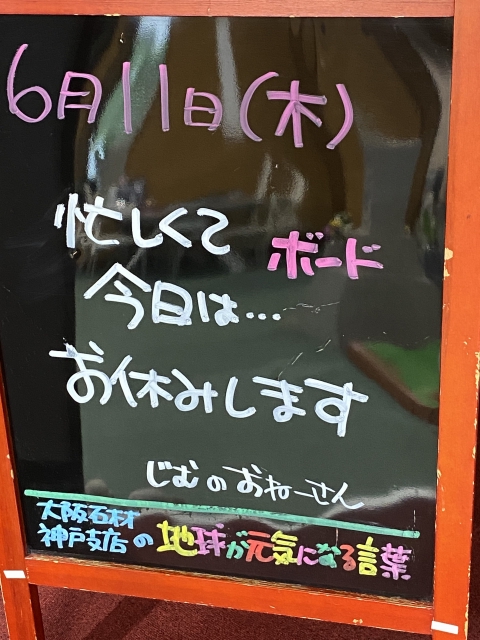 6月11日(木)
忙しくて
ボード
今日は...
お休みします
じむのおねーさん
大阪石材
神戸支店の地球が元気になる言葉